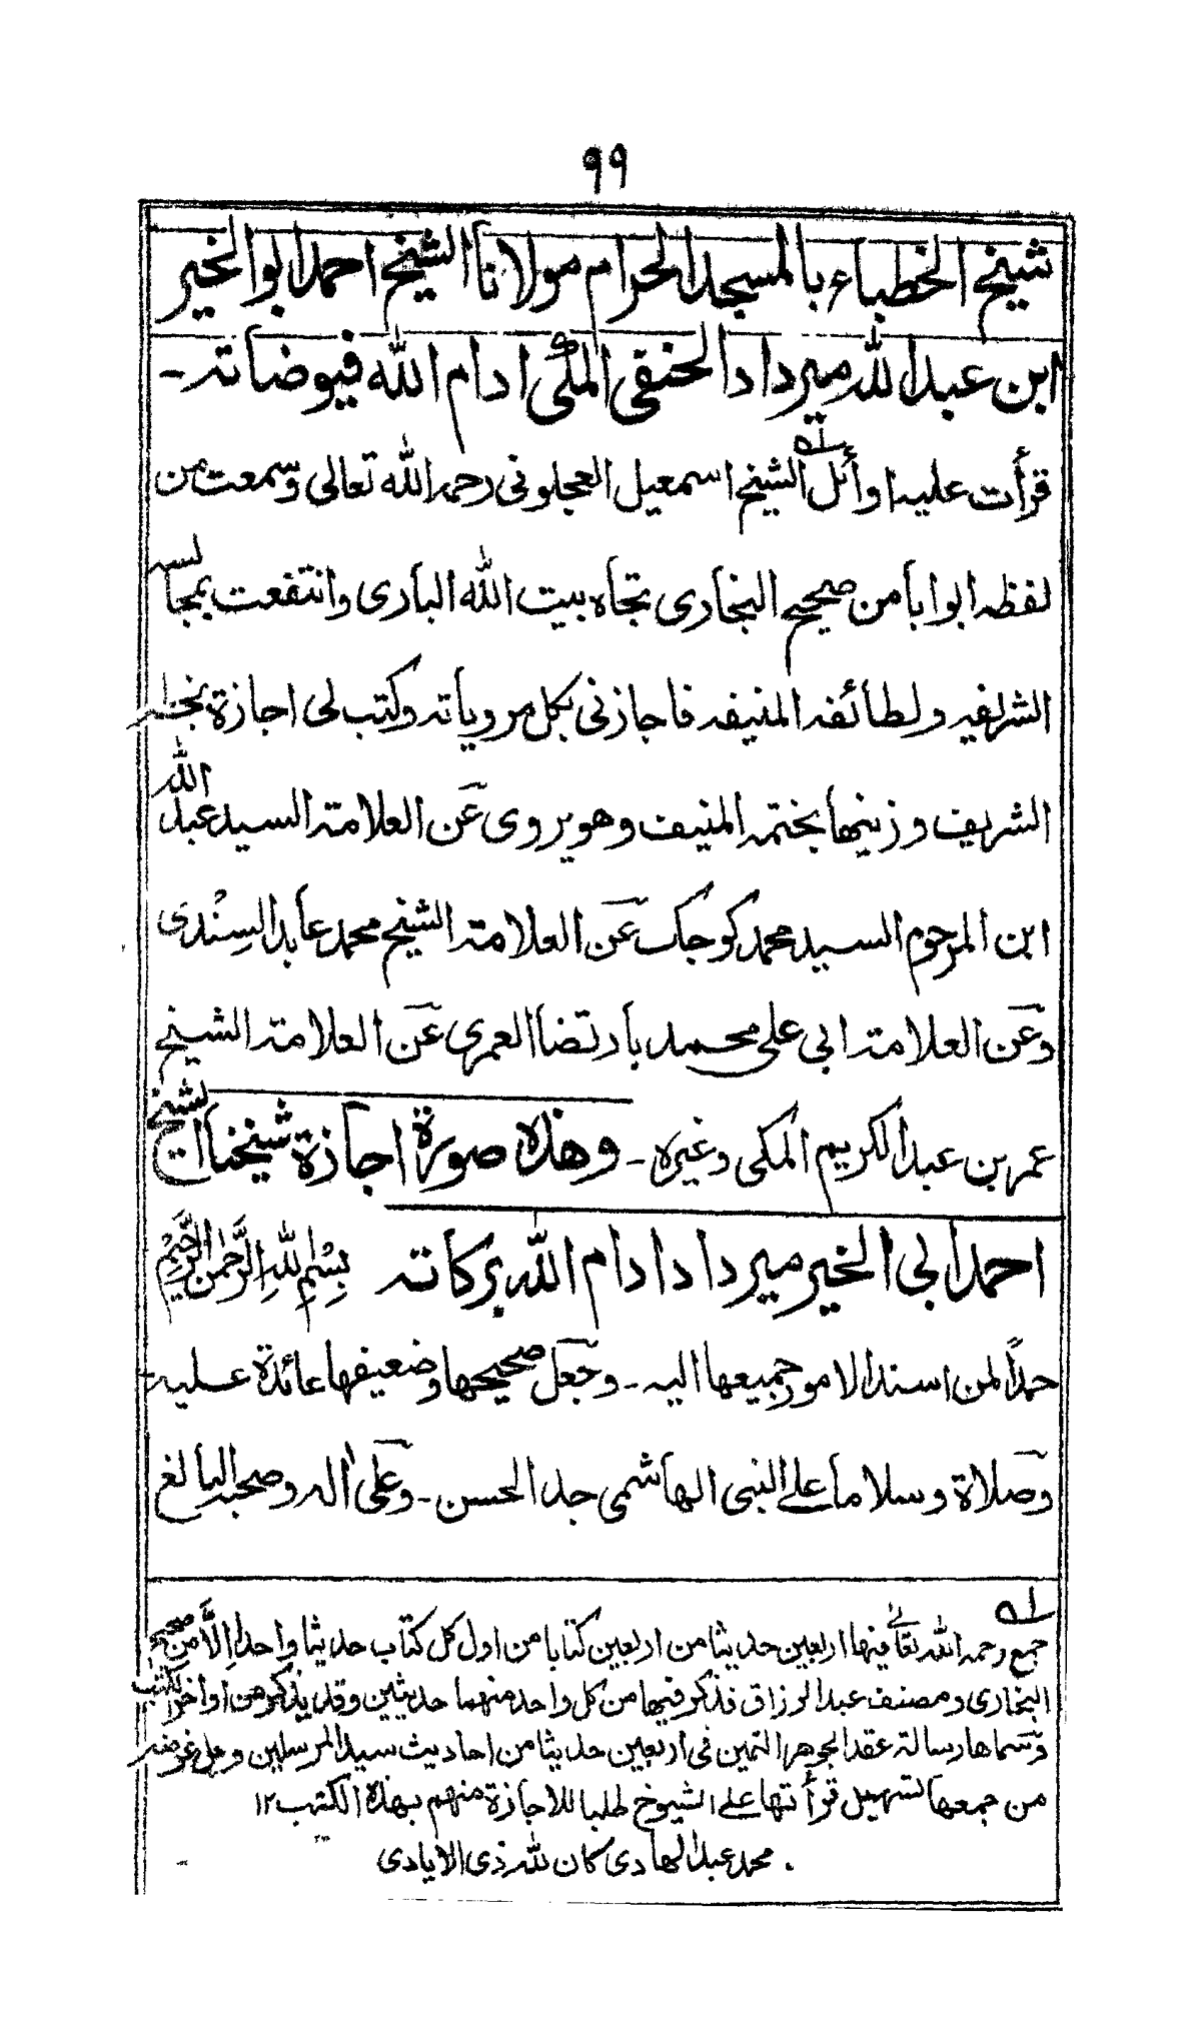 ٩٩
شيخ الخطباء بالمسجد الحرام مولانا الشيخ احمد ابو الخير
ابن عبد الله ميرداد الحنفى المكى ادام الله فيوضاته ـ
قرأت عليه اوائل الشيخ اسمعيل العجلونى رحمه الله تعالى وسمعت من
لفظه ابوابا من صحيح البخارى تجاه بيت الله البارى وانتفعت بمجالسه
الشريفه ولطائفه المنيفه فاجازنى بكل مروياته وكتب لى اجازة بخطه
الشريف وزينها بختمه المنيف وهو يروى عن العلامة السيد عبد الله
ابن المرحوم السيد محمد كوجك عن العلامة الشيخ محمد عابد السِنْدى
وعن العلامة ابى على محمد بارتضا العمرى عن العلامة الشيخ
عمر بن عبد الكريم المكى وغيره ـ وهذه صورة اجازة شيخنا الشيخ
احمد ابى الخير ميرداد ادام الله بركاته بِسْمِ اللهِ الرَّحْمٰنِ الرَّحِيْمِ
حمدًا لمن اسند الامور جميعها اليه ـ وجعل صحيحها وضعيفها عائدة عليه ـ
وصلاة وسلاما على النبى الهاشمى جد الحسن ـ وعلى اٰله وصحبه البالغ
له
جمع رحمه الله تعالىٰ فيها اربعين حديثا من اربعين كتابا من اول كل كتاب حديثا واحدا اِلَّا من صحيح
البخارى ومصنف عبد الرزاق فذكر فيها من كل واحد منهما حديثين وقد يذكر من اواخر الكتب
وسماها رسالة عقد الجوهر الثمين فى اربعين حديثا من احاديث سيد المرسلين وجل غرضه
من جمعها لتسهيل قرأتها على الشيوخ طلبا للاجازة منهم بهذه الكتب ١٢
محمد عبد الهادى كان لله ذى الايادى